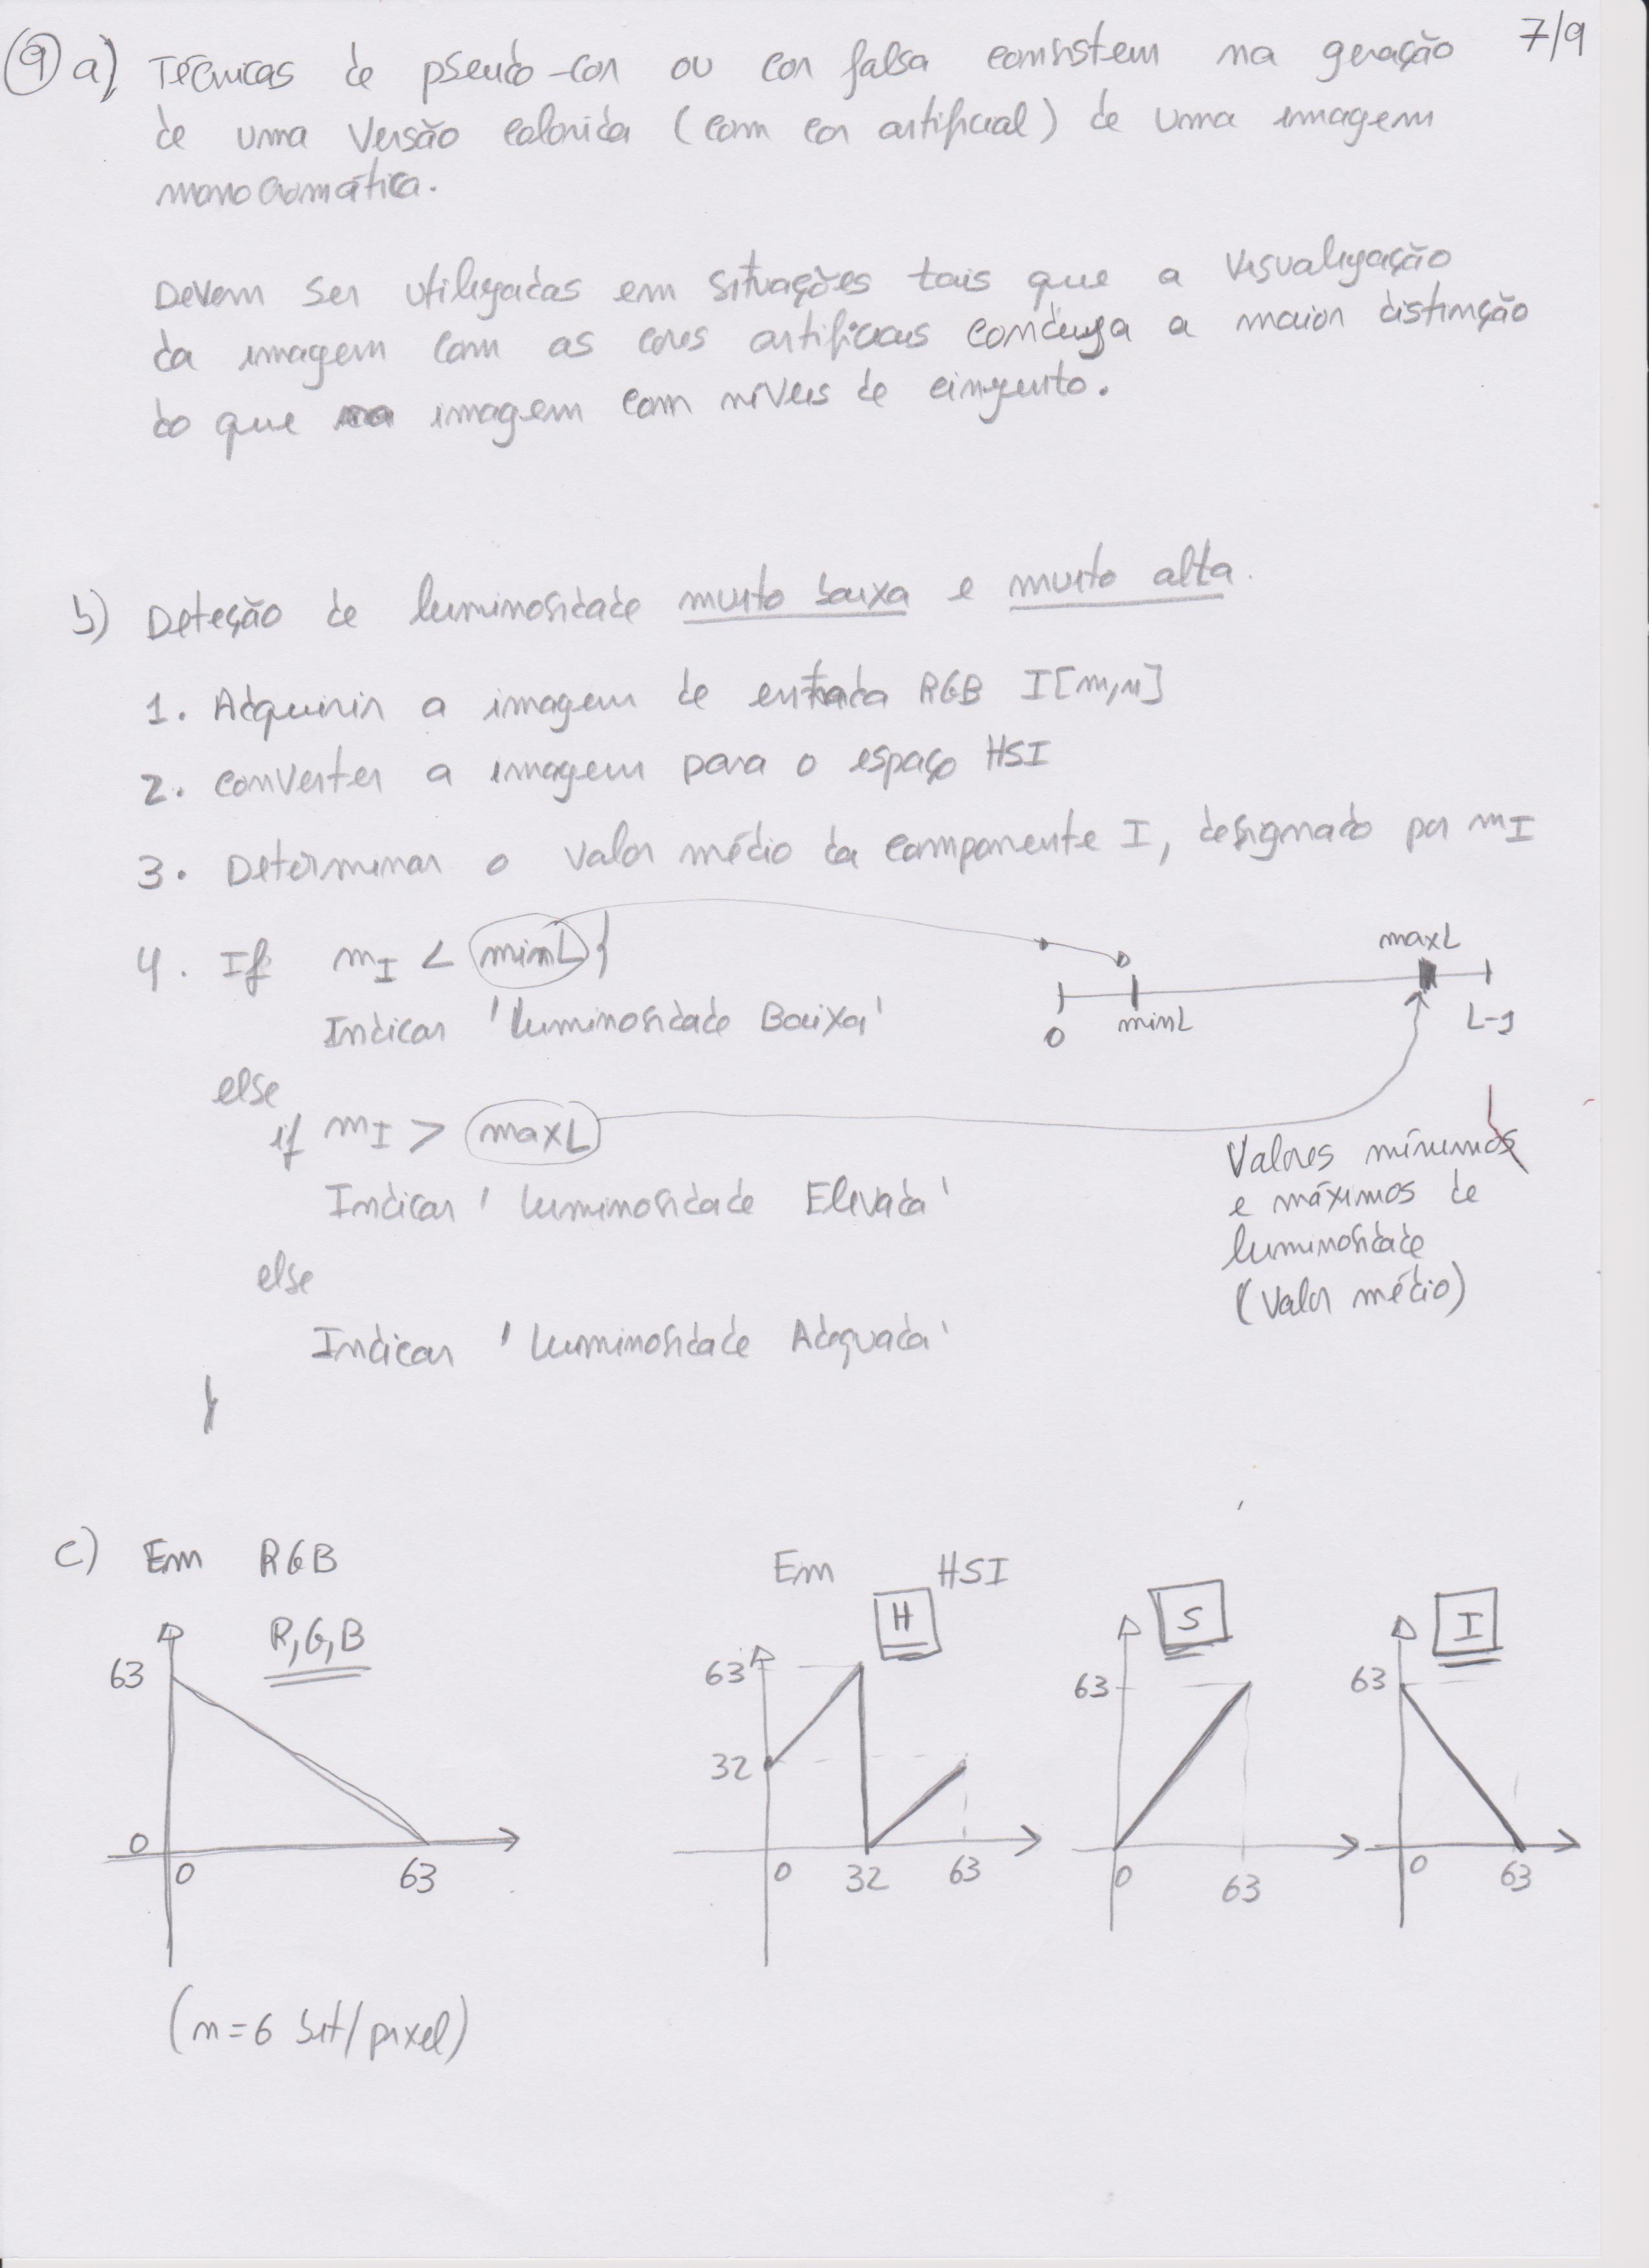 7/9
9 a) Técnicas de pseudo-cor ou cor falsa consistem na geração
de uma versão colorida (com cor artificial) de uma imagem
monocromática.
Devem ser utilizadas em situações tais que a visualização
da imagem com as cores artificiais conduza a maior distinção
do que na imagem com níveis de cinzento.
b) Deteção de luminosidade muito baixa e muito alta.
1. Adquirir a imagem de entrada RGB I[m,n]
2. Converter a imagem para o espaço HSI
3. Determinar o valor médio da componente I, designado por mI
4. If mI < minL {
Indicar 'Luminosidade Baixa'
else
if mI > maxL
Indicar 'Luminosidade Elevada'
else
Indicar 'Luminosidade Adequada'
}
maxL
0 minL L-1
Valores mínimos
e máximos de
luminosidade
(valor médio)
c) Em RGB
R,G,B
63
0
0 63
(n=6 bit/pixel)
Em HSI
H
63
32
0 32 63
S
63
0 63
I
63
0 63